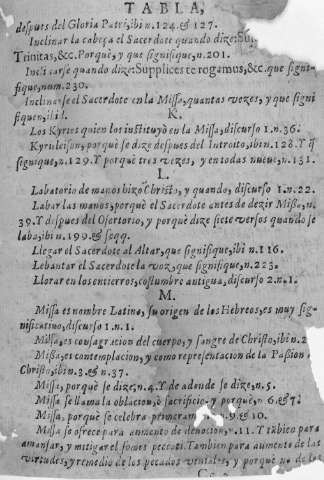 TABLA,
despues del Gloria Patri, ibi n. 124. & 127.
Inclinar la cabeça el Sacerdote quando dize:
Trinitas, &c. Porquè, y que significa, n. 201.
quando dize: Supplices te rogamus, &c. que signi-
fique, num. 230.
Inclinarse el Sacerdote en la Missa, quantas vezes, y que signi
fiquen,
K.
Los Kyries quien los instituyò en la Missa, discurso 1. n. 36.
Kyrieleison, porquè se dize despues del Introito, ibi n. 128. Y q̃
signique, n. 129. Y porquè tres vezes, y en todas nueve, n. 131.
L.
Labatorio de manos hizo Christo, y quando, discurso 1. n. 22.
Labar las manos, porquè el Sacerdote antes de dezir Missa, n.
39. Y despues del Ofertorio, y porquè dize siete versos quando se
laba, ibi n. 199. & seqq.
Llegar el Sacerdote al Altar, que signifique, ibi n. 116.
Lebantar el Sacerdote la voz, que signifique, n. 223.
Llorar en los entierros, costumbre antigua, discurso 2. n. 1.
M.
Missa es nombre Latino, su origen de los Hebreos, es muy sig-
nificatino, discurso 1. n. 1.
Missa, es consagracion del cuerpo, y sangre de Christo, ibi n. 2
Missa, es contemplacion, y como representacion de la Passion
Christo, ibi n. 3. & n. 37.
Missa, porquè se dize, n. 4. Y de adonde se dize, n. 5.
Missa se llama oblacion, ò sacrificio, y porquè, n. 6. & 7.
Missa, porquè se celebra n. 9. & 10.
Missa se ofrece para aumento de devocion, n. 11. Y tãbien para
amansar, y mitigar el fomes peccati. Tambien para aumento de las
virtudes, y remedio de los pecados veniales, y porquè no de los